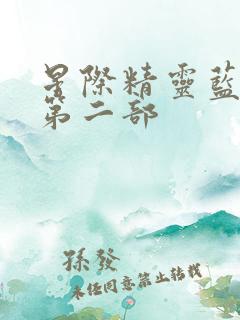 星際精靈藍
第二部
孫發
未經同意禁止轉載